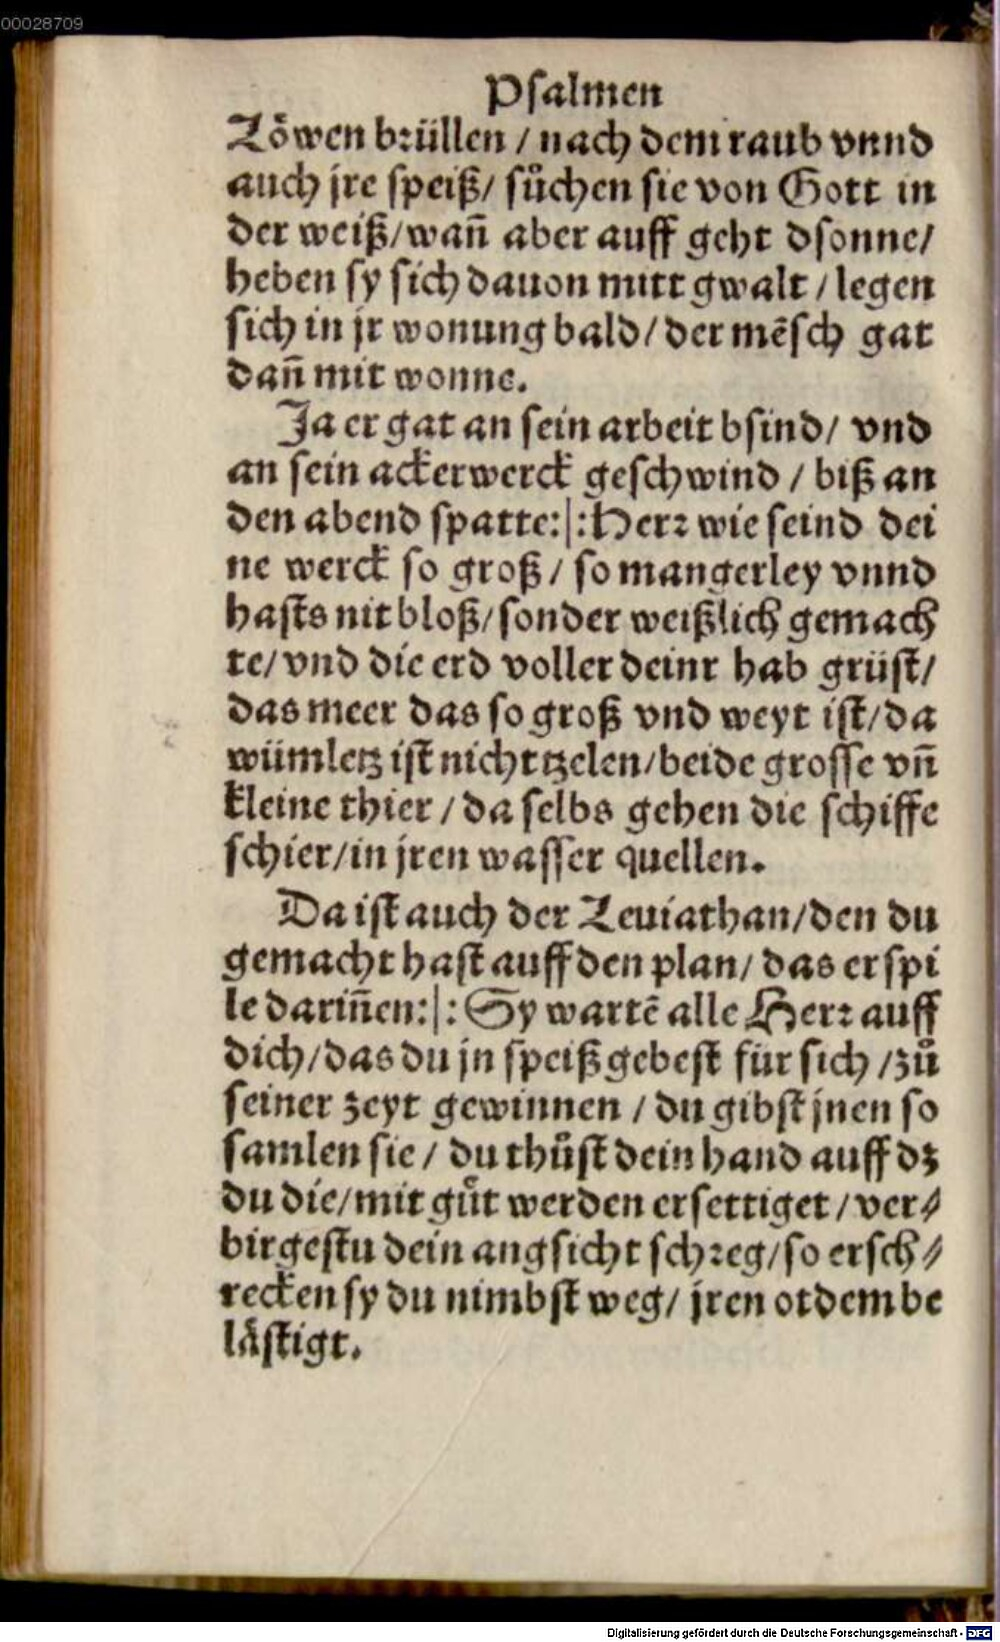 00028709
Psalmen
Löwen brüllen / nach dem raub vnnd
auch jre speiß / sůchen sie von Gott in
der weiß / wañ aber auff geht dsonne /
heben sy sich dauon mitt gwalt / legen
sich in jr wonung bald / der mẽsch gat
dañ mit wonne.
Ja er gat an sein arbeit bsind / vnd
an sein ackerwerck geschwind / biß an
den abend spatte:|:Herr wie seind dei
ne werck so groß / so mangerley vnnd
hasts nit bloß / sonder weißlich gemach
te / vnd die erd voller deinr hab grüst /
das meer das so groß vnd weyt ist / da
wümletz ist nicht tzelen / beide grosse vñ
kleine thier / da selbs gehen die schiffe
schier / in jren wasser quellen.
Da ist auch der Leuiathan / den du
gemacht hast auff den plan / das er spi
le dariñen:|: Sy wartẽ alle Herr auff
dich / das du jn speiß gebest für sich / zů
seiner zeyt gewinnen / du gibst jnen so
samlen sie / du thůst dein hand auff dz
du die / mit gůt werden ersettiget / ver⸗
birgestu dein angsicht schreg / so ersch⸗
recken sy du nimbst weg / jren otdem be
lästigt.
Digitalisierung gefördert durch die Deutsche Forschungsgemeinschaft - DFG